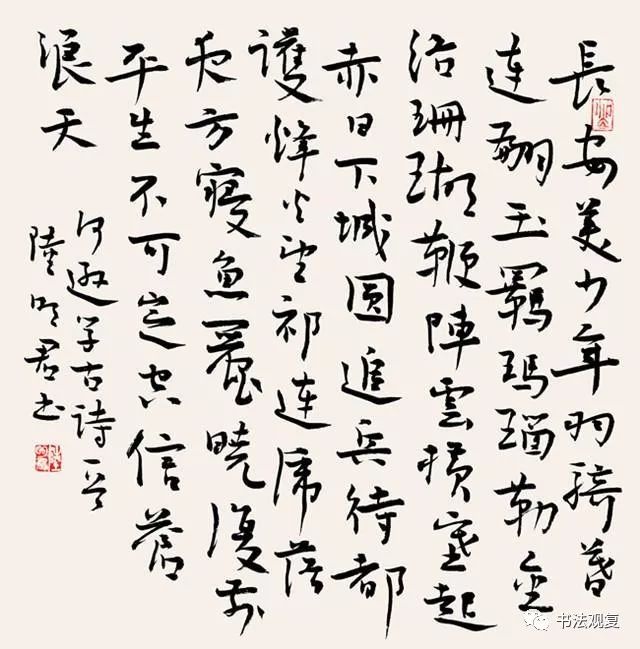 長安美少年羽騎暮
連翩玉羈瑪瑙勒金
絡珊瑚鞭陣雲横塞起
赤日下城圓追兵待都
護烽火望祁連虎落
夜方寝魚麗曉復前
平生不可定空信蒼
浪天
何遜学古詩一首
陸明君书
书法观复